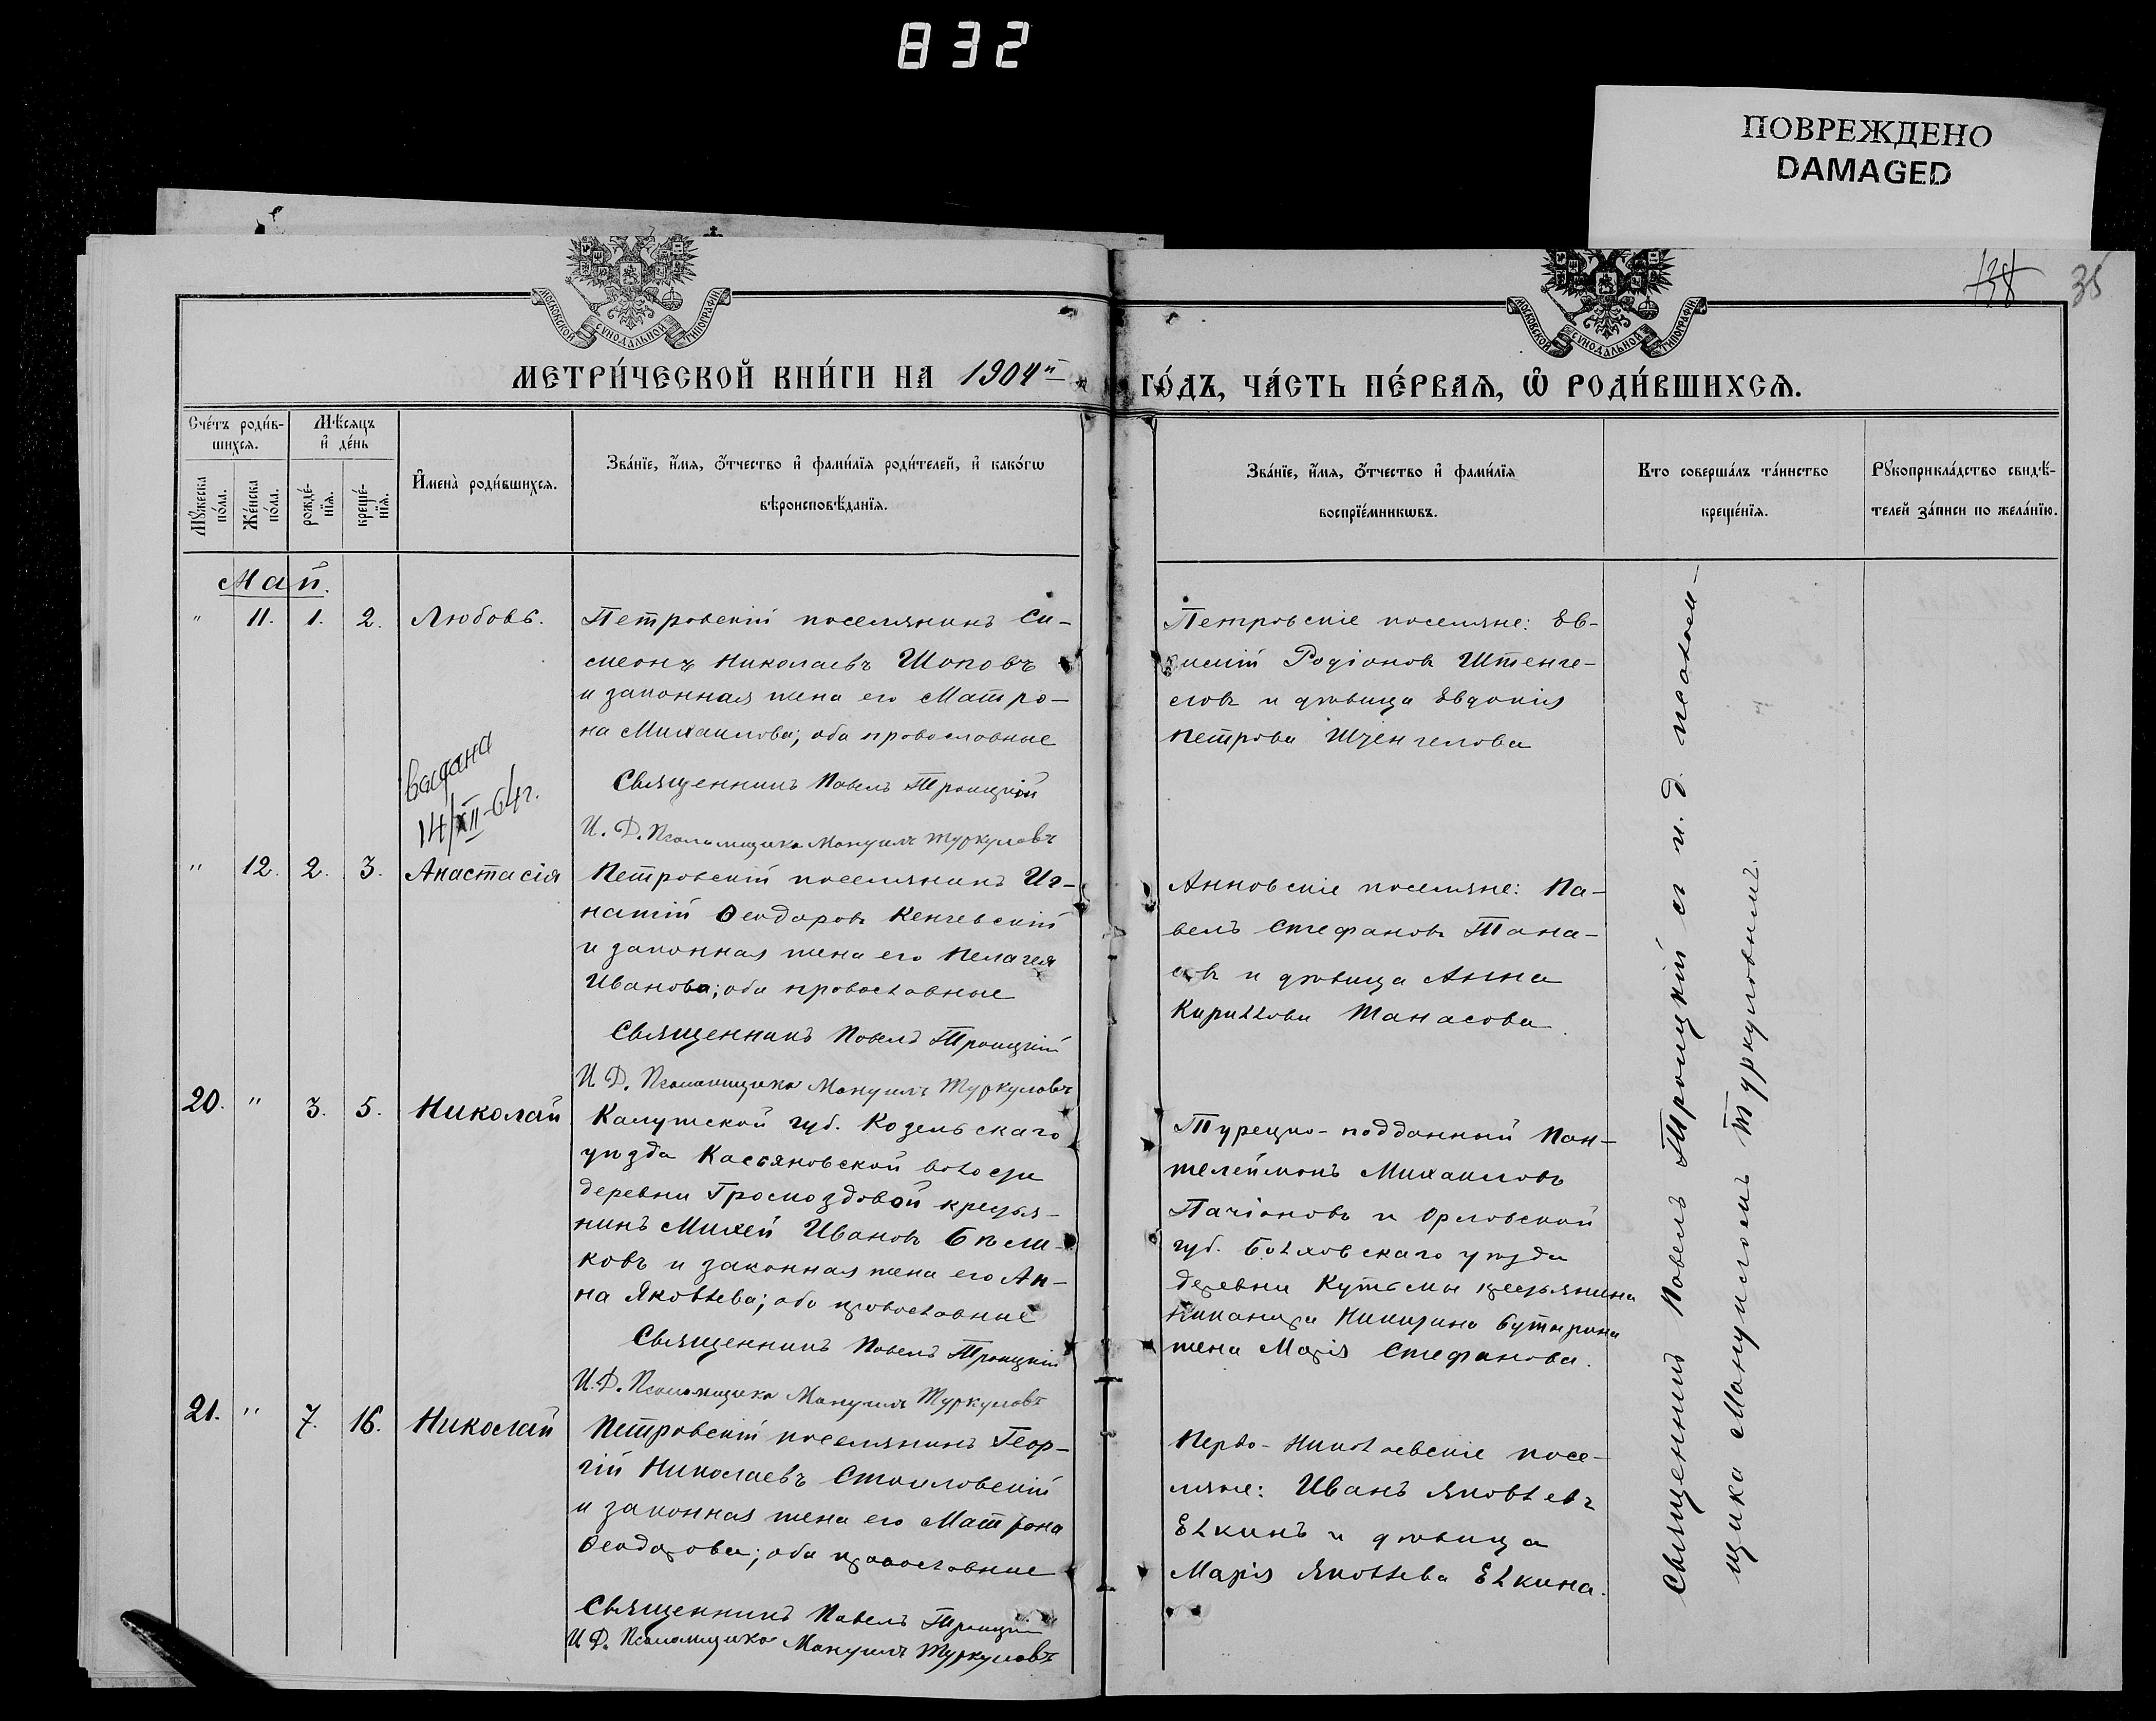 832
ПОВРЕЖДЕНО
DAMAGED
138
35
МОСКОВСКОЙ СѴНОДАЛЬНОЙ ТИПОГРАФІИ
МОСКОВСКОЙ СѴНОДАЛЬНОЙ ТИПОГРАФІИ
МЕТРИ́ЧЕСКОЙ КНИ́ГИ НА 1904й
ГО́ДЪ, ЧА́СТЬ ПЕ́РВАѦ, Ѡ҆ РОДИ́ВШИХСѦ.
Сче́тъ роди́в-
шихсѧ.
Мѣ́сѧцъ
и҆ де́нь
Мꙋ́жеска по́ла.
Же́нска по́ла.
рожде́-
нїѧ.
креще́-
нїѧ.
И҆мена̀ роди́вшихсѧ.
Зва́нїе, и҆́мѧ, ѻ҆́тчество и҆ фами́лїѧ роди́телей, и҆ како́гѡ
вѣроисповѣ́данїѧ.
Зва́нїе, и҆́мѧ, ѻ҆́тчество и҆ фами́лїѧ
воспрїе́мникѡвъ.
Кто соверша́лъ та́инство
креще́нїѧ.
Рꙋкоприкла́дство свидѣ́-
телей за́писи по жела́нїю.
Май.
" 11. 1. 2. Любовь.
Петровскій поселянинъ Си-
меонъ Николаевъ Шоповъ
и законная жена его Матро-
на Михаилова; оба православные
Священникъ Павелъ Троицкій
И. Д. Псаломщика Мануилъ Туркуловъ
Петровскіе поселяне: Ев-
Родіоновъ Штенге-
ловъ и дѣвица Евдокія
Петрова Штенгелова
выдана
14/XII-64г.
" 12. 2. 3. Анастасія
Петровскій поселянинъ Иг-
натій Ѳеодоровъ Кенчевскій
и законная жена его Пелагея
Иванова; оба православные
Священникъ Павелъ Троицкій
И. Д. Псаломщика Мануилъ Туркуловъ
Анновскіе поселяне: Па-
велъ Стефановъ Тана-
овъ и дѣвица Анна
Кириллова Танасова.
20. " 3. 5. Николай
Калужской губ. Козельскаго
уѣзда Касьяновской волости
деревни Громоздовой крестья-
нинъ Михей Ивановъ Бѣли-
ковъ и законная жена его Ан-
на Яковлева; оба православные
Священникъ Павелъ Троицкій
И. Д. Псаломщика Мануилъ Туркуловъ
Турецко-подданный Пан-
телеймонъ Михаиловъ
Пачіановъ и Орловской
губ. Болховскаго уѣзда
деревни Кутьмы крестьянина
Никанора Никитина Бутырина
жена Марія Стефанова.
21. " 7. 16. Николай
Петровскій поселянинъ Геор-
гій Николаевъ Стоиловскій
и законная жена его Матрона
Ѳеодорова; оба православные
Священникъ Павелъ Троицкій
И. Д. Псаломщика Мануилъ Туркуловъ
Николаевскіе посе-
ляне: Иванъ Яковлевъ
Елкинъ и дѣвица
Марія Яковлева Елкина.
Священникъ Павелъ Троицкій съ и. д. псалом-
щика Мануиломъ Туркуловымъ.